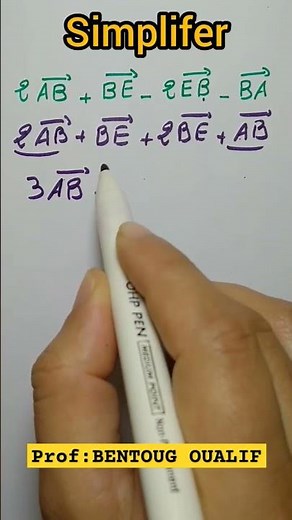 Simplifer
2AB⃗ + BE⃗ - 2EB⃗ - BA⃗
2AB⃗ + BE⃗ + 2BE⃗ + AB⃗
3AB⃗
OHP PEN
MEDIUM POINT
Prof:BENTOUG OUALIF